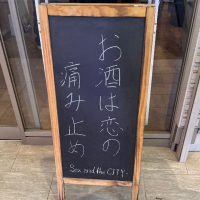 お酒は恋の
痛み止め
Sex and the CITY.